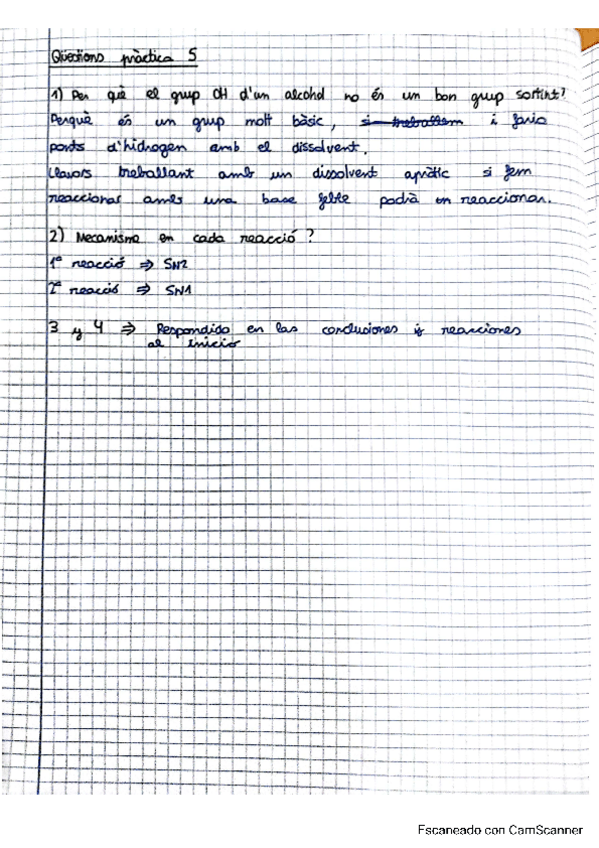 Qüestions pràctica 5
1) Per què el grup OH d'un alcohol no és un bon grup sortint?
Perquè és un grup molt bàsic, si treballem i faria
ponts d'hidrogen amb el dissolvent.
Llavors treballant amb un dissolvent apròtic si fem
reaccionar amb una base feble podrà en reaccionar.
2) Mecanisme en cada reacció?
1ª reacció ⇒ SN2
2ª reacció ⇒ SN1
3 y 4 ⇒ Respondido en las conclusiones y reacciones
al inicio
Escaneado con CamScanner